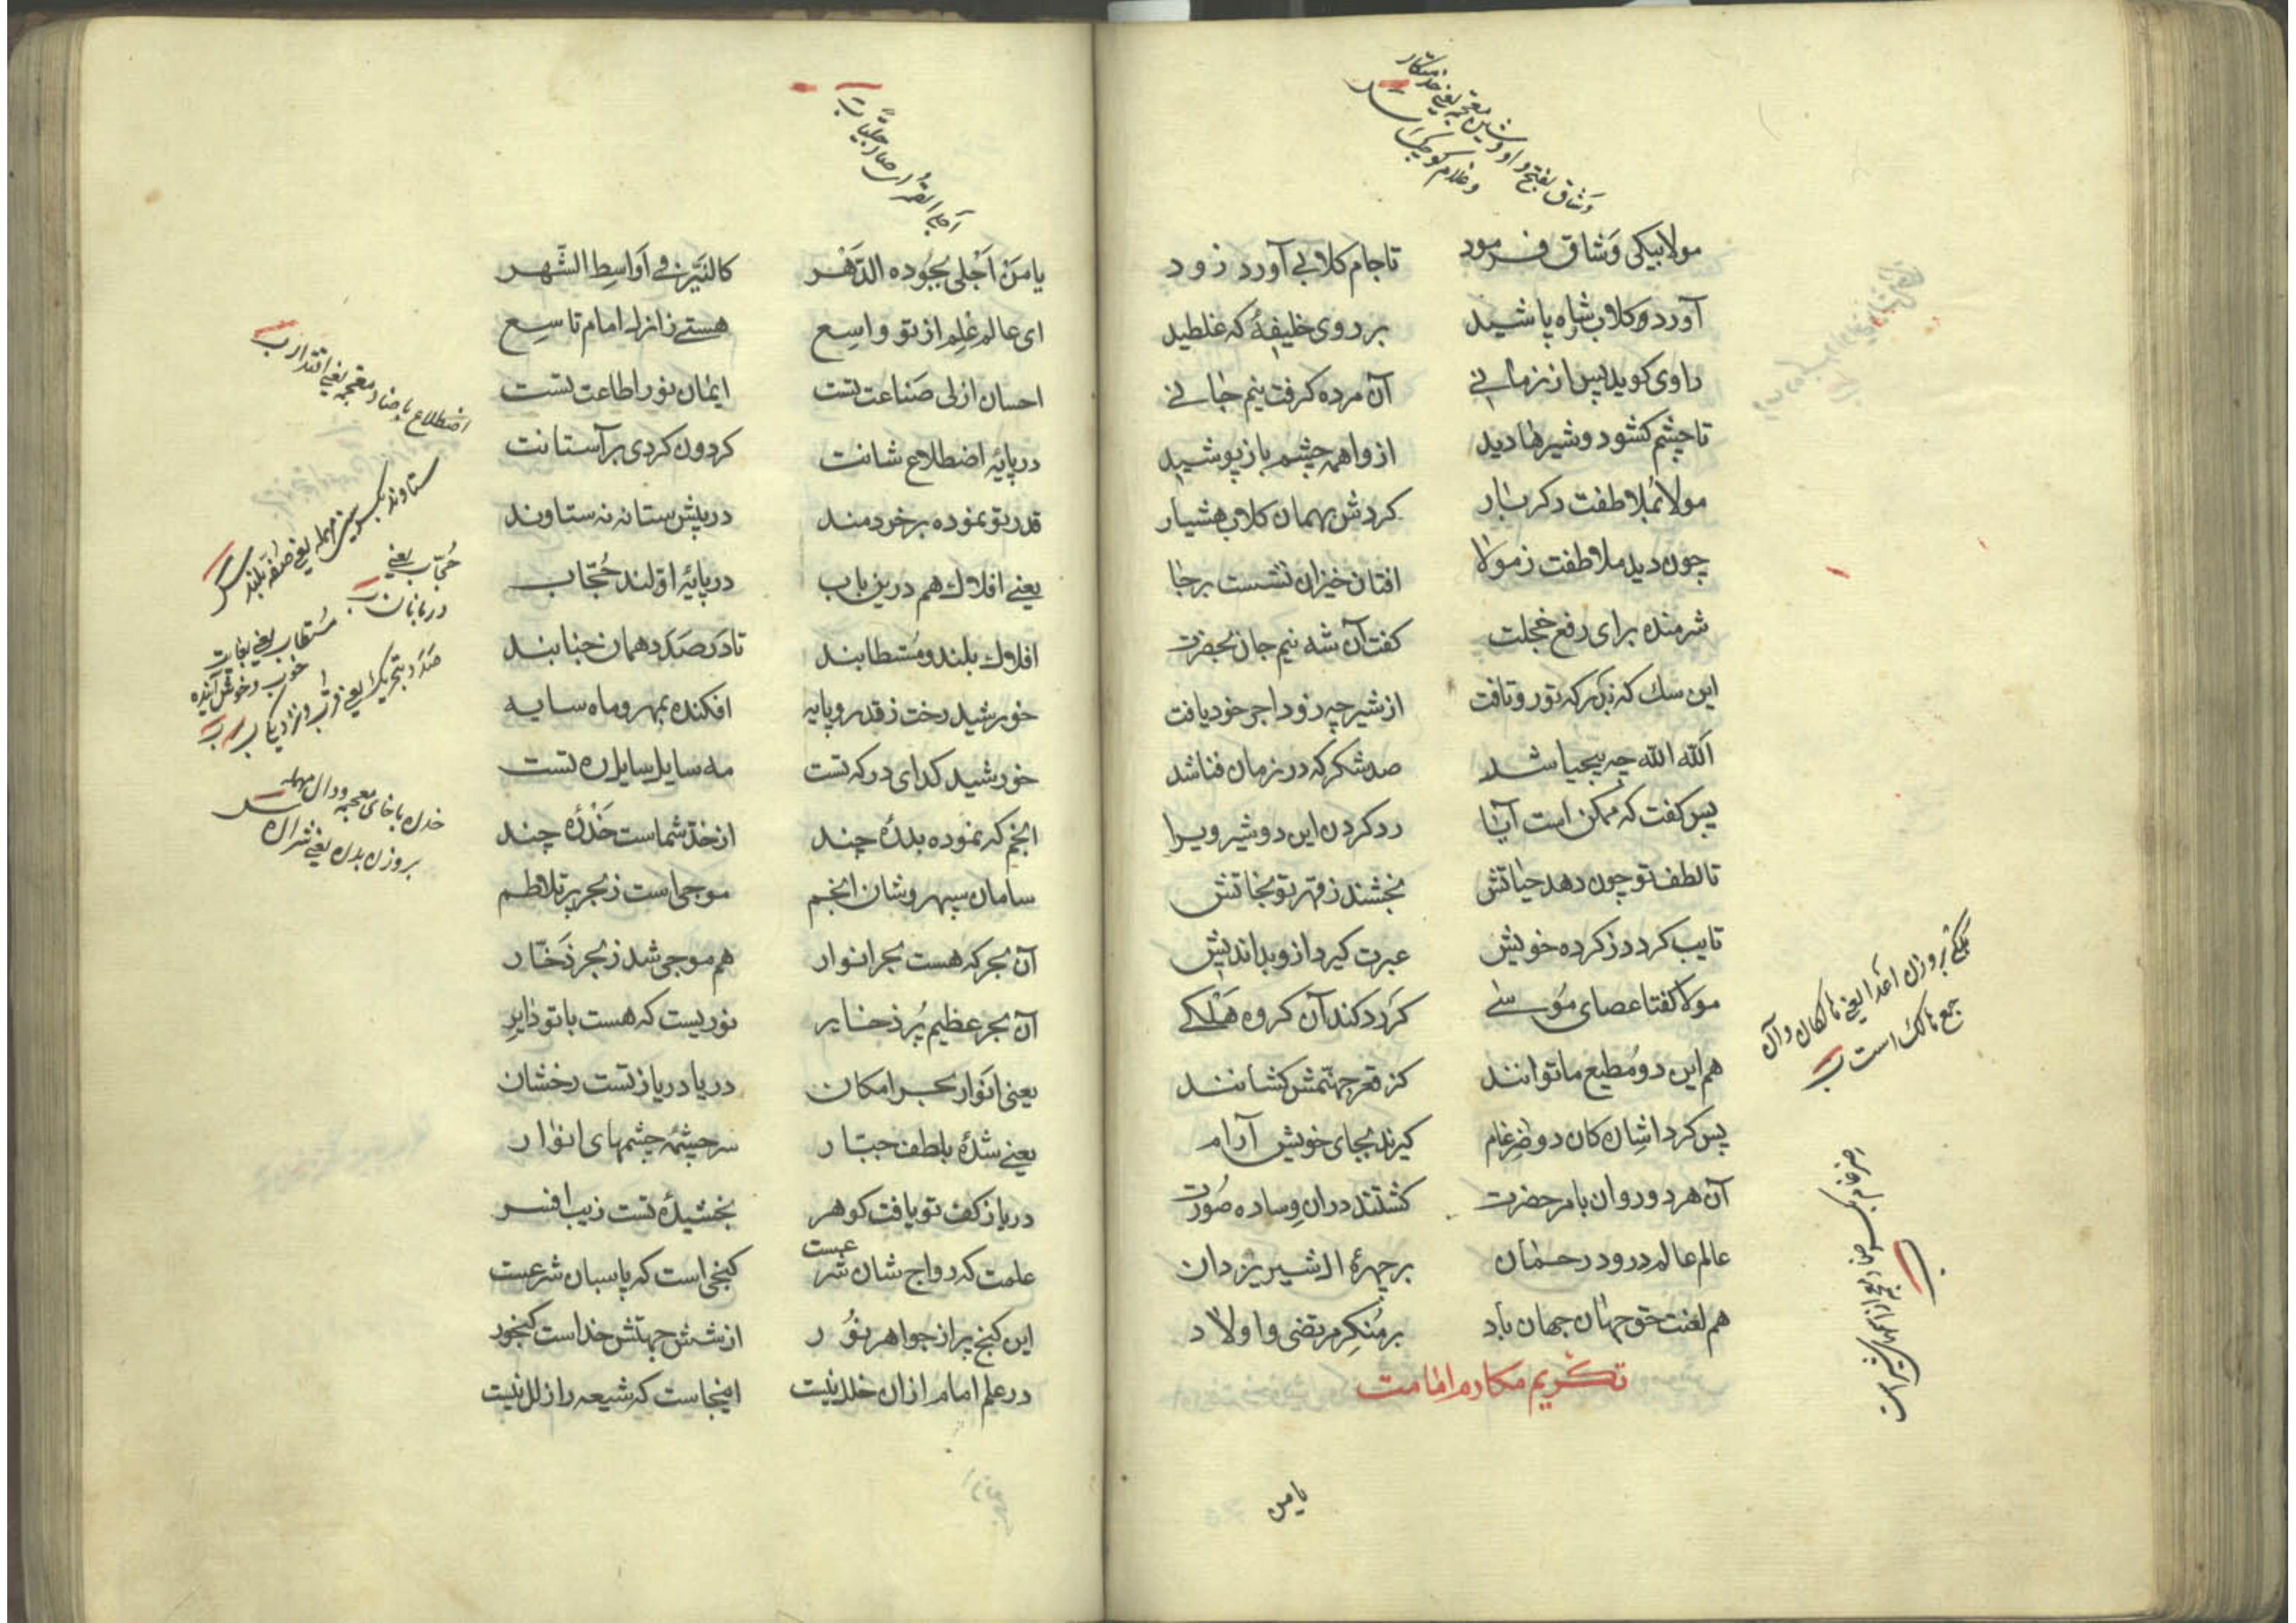 مولا بیکی وَشاق فرمود
تا جام کلابی آورد زود
آورد و کلاب شاه پاشید
بر روی خلیفهٔ که غلطید
راوی کوید پس از زمانی
آن مرده کرفت نیم جانی
تا چشم کشود و شیرها دید
از واهمه چشم باز پوشید
مولا بملاطفت دکر بار
کردش بهمان کلاب هشیار
چون دید ملاطفت ز مولا
افتان خیزان نشست بر جا
شرمنده برای رفع خجلت
کفت آن شه نیم جان بحضرت
این سك که ز در که تو رو تافت
از شیر چه زود اجر خود یافت
اَللّه اللّه چه بیحیا شد
صد شکر که در زمان فنا شد
پس کفت که ممکن است آیا
رد کردن این دو شیر ویرا
تا لطف تو چون دهد حیاتش
بخشند ز قهر تو نجاتش
تایب کردد ز کرده خویش
عبرت کیرد ازو بد اندیش
مولا کفتا عصای موسی
کر رد کند آن کروه هَلکی
هم این دو مُطیع ما توانند
کز قعر جهنّمش کشانند
پس کرد اشان کان دو ضِرغام
کیرند بجای خویش آرام
آن هر دو روان بامر حضرت
کشتند دران وِساده صُورت
عالم عالم درود رحمان
بر چهرهٔ ال شیر یزدان
هم لعنت حق جهان جهان باد
بر مُنکِر مرتضی و اولاد
تکریم مکارم امامت
یا من
وَشاق بفتح واو و شین معجمه یعنی خدمتکار
و غلام کوچک است
هلکی بر وزن اعدا یعنی هالکان و آن
جمع هالک است
یا مَن اَجْلی بجُوده الدَهر
کالنَیّرِ فی اَواسِطِ الشّهر
ای عالم عِلم از تو واسِع
هستی زانرا امام تاسِع
احسان ازلی صَناعت تست
ایمان نور اطاعت تست
در پایهٔ اضطلاع شانت
کردون کردی بر آستانت
قدر تو نموده بر خردمند
در پیش ستانه نه ستاوند
یعنی افلاك هم درین باب
در پایهٔ اوّلند حُجّاب
افلاك بلند و مُستطابند
تا در صَدَد همان جنابند
خورشید رخت ز قدر و پایه
افکنده بمهر و ماه سایه
خورشید کدای درکه تست
مه سایل سایل ره تست
انجم که نموده بدرهٔ چند
از خدّ شماست خَدْرَهٔ چند
سامان سپهر و شان انجم
موجی است ز بحر پر تلاطم
آن بحر که هست بحر انوار
هم موجی شد ز بحر زَخّار
آن بحر عظیم پُر ذخایر
نوریست که هست با تو دایر
یعنی اَنوار بحر امکان
دریا دریا ز تست رخشان
یعنی شدهٔ بلطف جبّار
سرچشمهٔ چشمهای انوار
دریا ز کف تو یافت کوهر
بخشیدهٔ تست زیب افسر
علمت که رواج شان شرعست
کنجی است که پاسبان شرعست
این کنج پر از جواهر نُور
از شش جهتش خداست کنجور
در علم امام ازان خلل نیست
اینجاست که شیعه را زلل نیست
اضطلاع با ضاد معجمه یعنی اقتدار
ستاوند بکسر سین مهمله یعنی صفّه بلند
حُجّاب یعنی
دربانان
مُستطاب یعنی بغایت
خوب و خوش آینده
صَدَد بتحریک یعنی قرب و نزدیک
خدره با خای معجمه و دال مهمله
بر وزن بدره یعنی شراره